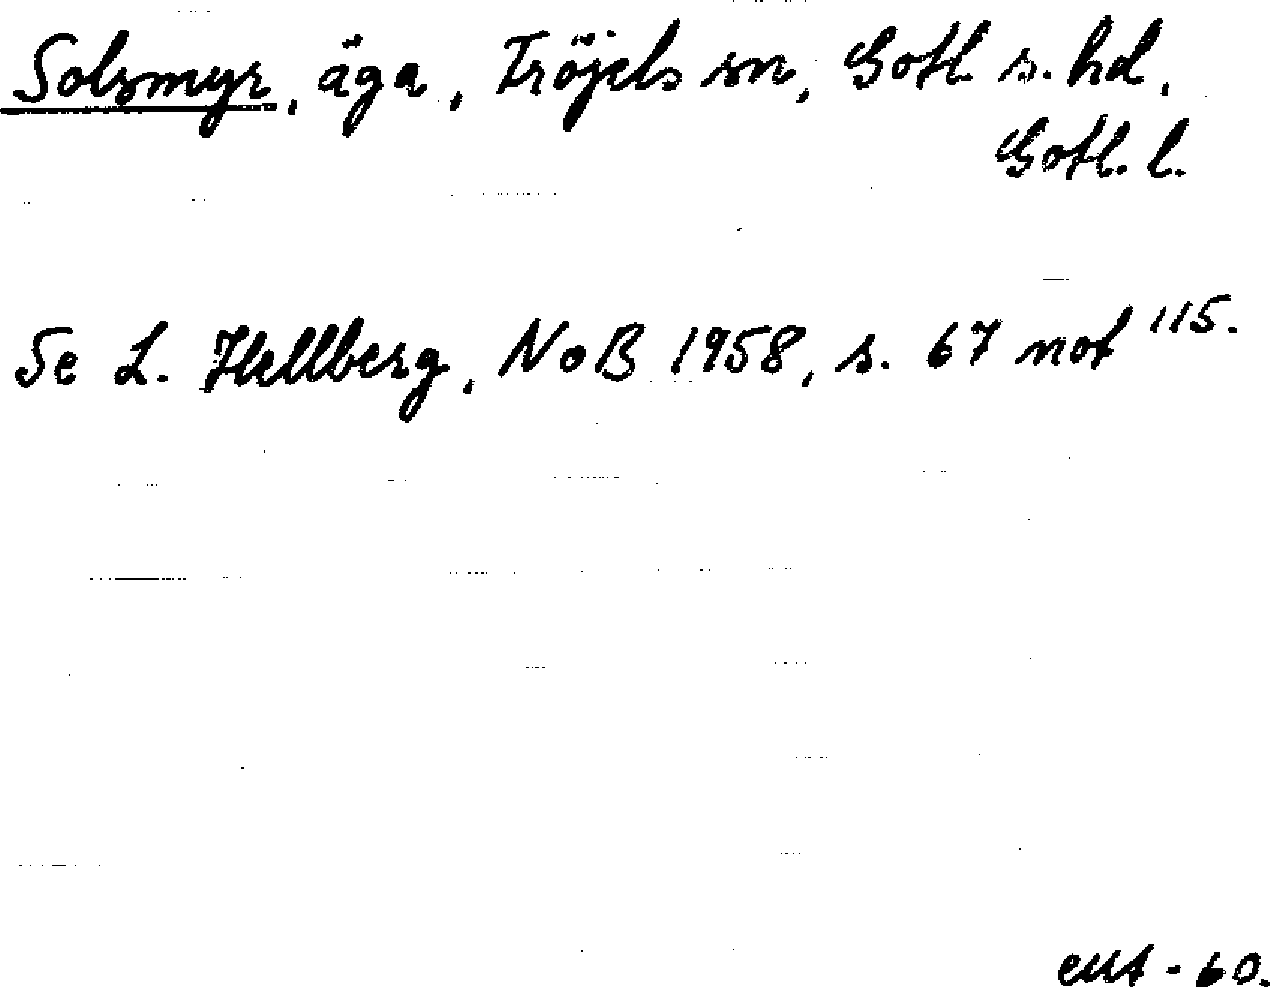 Solsmyr, äga, Fröjels sn, Gotl s. hd,
Gotl. l.
Se L. Hellberg, NoB 1958, s. 67 not 115.
-60.